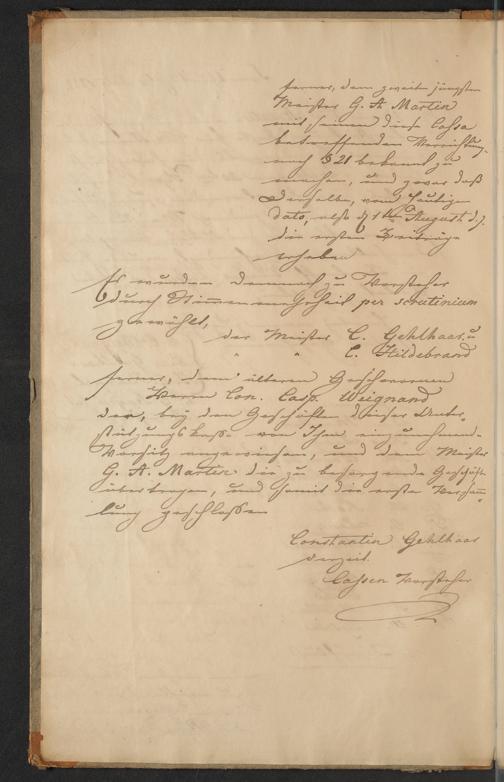 ferner, dem zweiten jüngsten
Meister G. A. Martin
mit seinen diese Cassa
betreffenden Verrichtung.
nach § 21 bekannt zu
machen, und zwar daß
derselbe, vom heutigen
dato, also d 1ten August d.J.
die ersten Beiträge
erhebe
Es wurden demnach zu Vorsteher
durch Stimmenmehrheit per scrutinium
gewählt,
der Meister C. Gehlhaar, u
" " C. Hildebrand
ferner, dem älteren Geschworenen
Herrn Con. Casp. Weignand
der, bey den Geschäften dieser Unter-
stützungs Kasse von Ihm einzunehmende
Vorsitz angewiesen, und dem Meister
G. A. Martin die zu besorgende Geschäfte
übertragen, und somit die erste Versamm-
lung geschlossen
Constantin Gehlhaar
derzeit.
Cassen Vorsteher